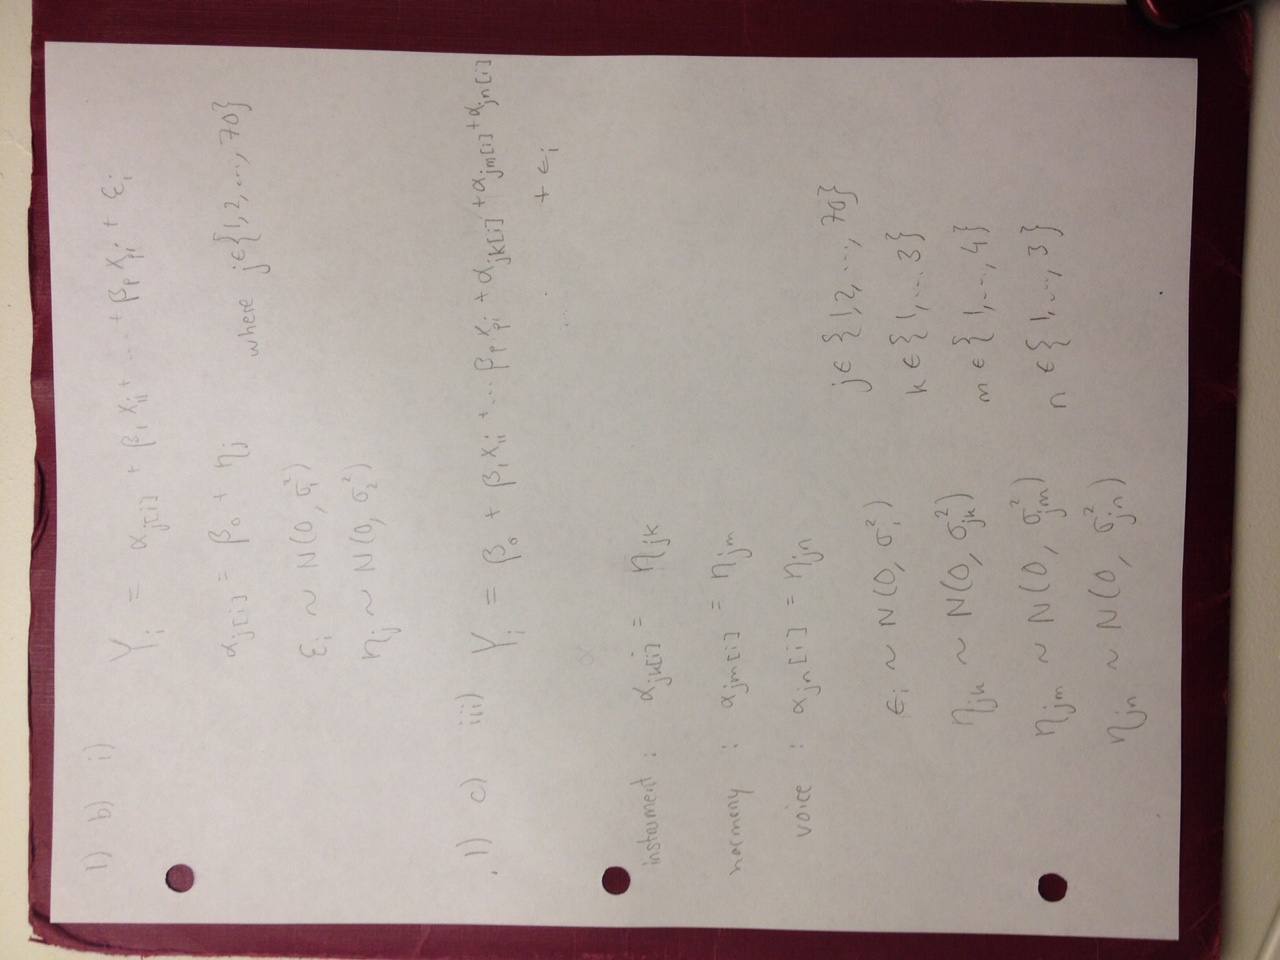 1) b) i) Y_i = α_{j[i]} + β_1 X_{1i} + ... + β_p X_{pi} + ε_i
α_{j[i]} = β_0 + η_j where j ∈ {1, 2, ..., 70}
ε_i ~ N(0, σ_1^2)
η_j ~ N(0, σ_2^2)
1) c) iii) Y_i = β_0 + β_1 X_{1i} + ... β_p X_{pi} + α_{jk[i]} + α_{jm[i]} + α_{jn[i]}
+ ϵ_i
instrument : α_{jk[i]} = η_{jk}
harmony : α_{jm[i]} = η_{jm}
voice : α_{jn[i]} = η_{jn}
j ∈ {1, 2, ..., 70}
ϵ_i ~ N(0, σ_1^2) k ∈ {1, ... 3}
η_{jk} ~ N(0, σ_{jk}^2) m ∈ {1, ..., 4}
η_{jm} ~ N(0, σ_{jm}^2) n ∈ {1, ..., 3}
η_{jn} ~ N(0, σ_{jn}^2)